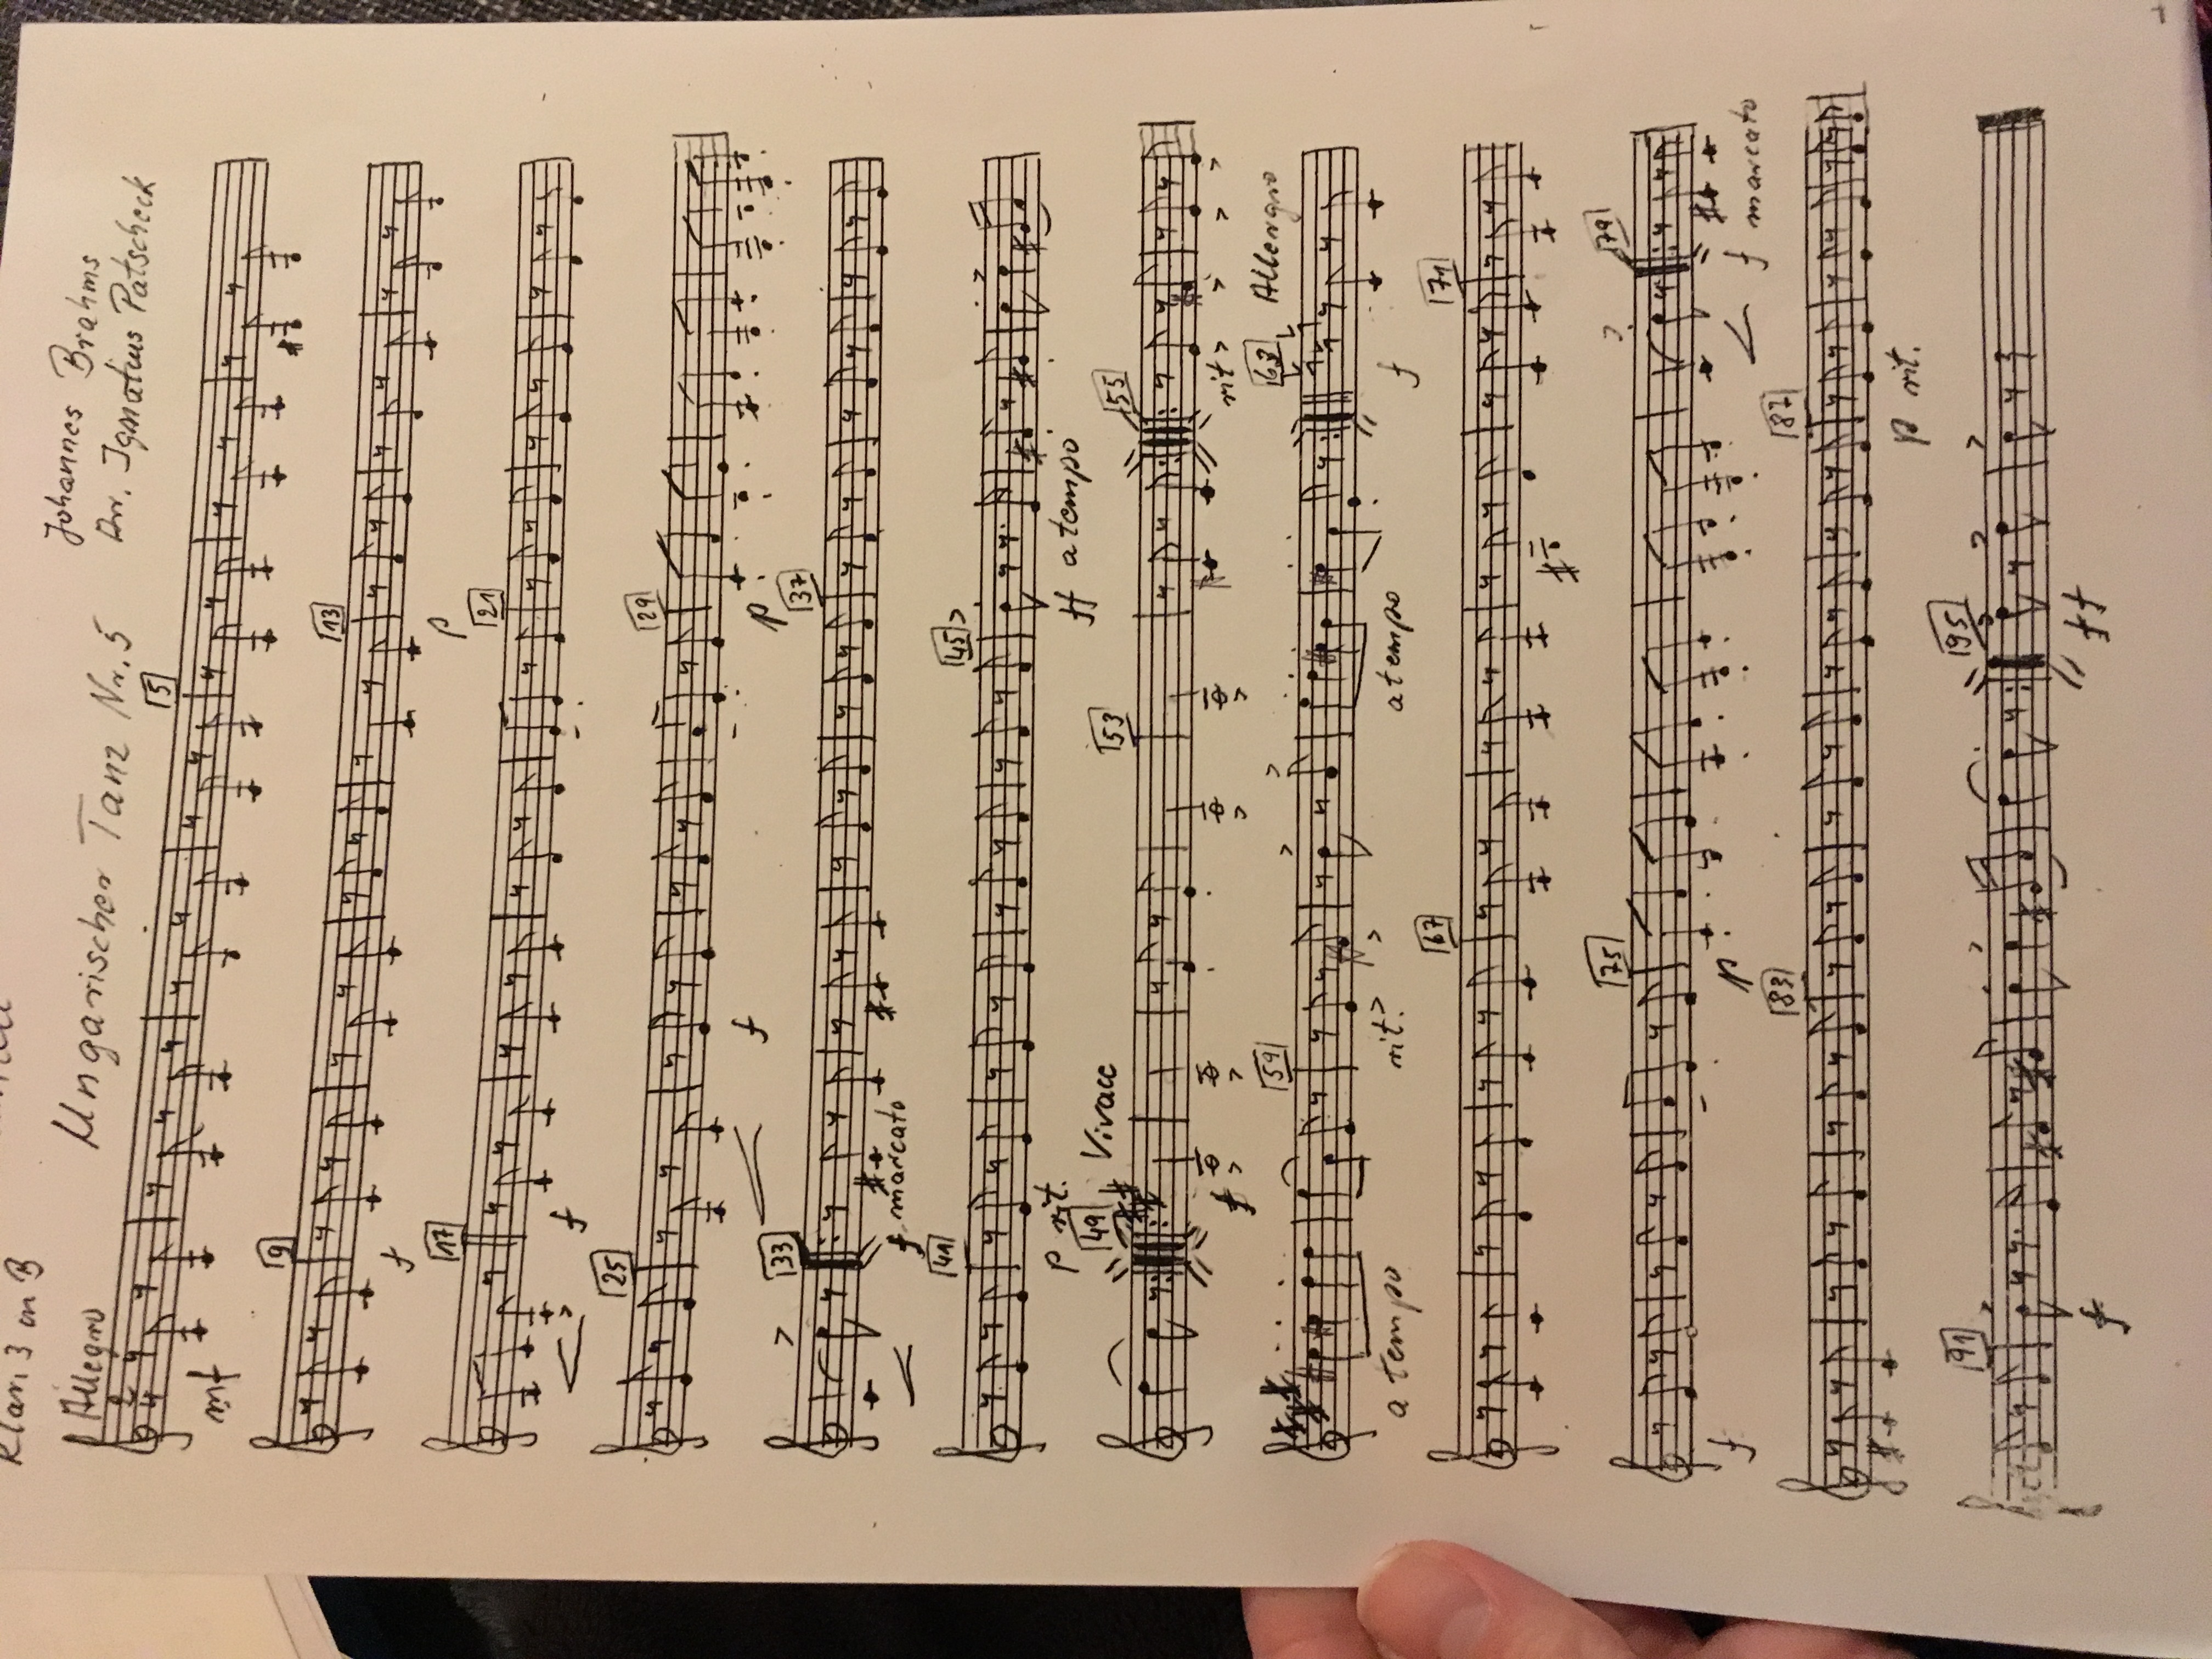 Klar. 3 in B
Johannes Brahms
Allegro
Ungarischer Tanz Nr. 5
Arr. Ignatius Patscheck
2
4
5
mf
9
f
13
p
17
f
21
25
f
29
p
33
f marcato
37
41
p rit.
45
ff a tempo
49
Vivace
f
53
55
rit
a tempo
59
rit.
a tempo
63
Allergro
f
67
71
f
75
p
79
f marcato
83
87
p rit.
91
f
95
ff